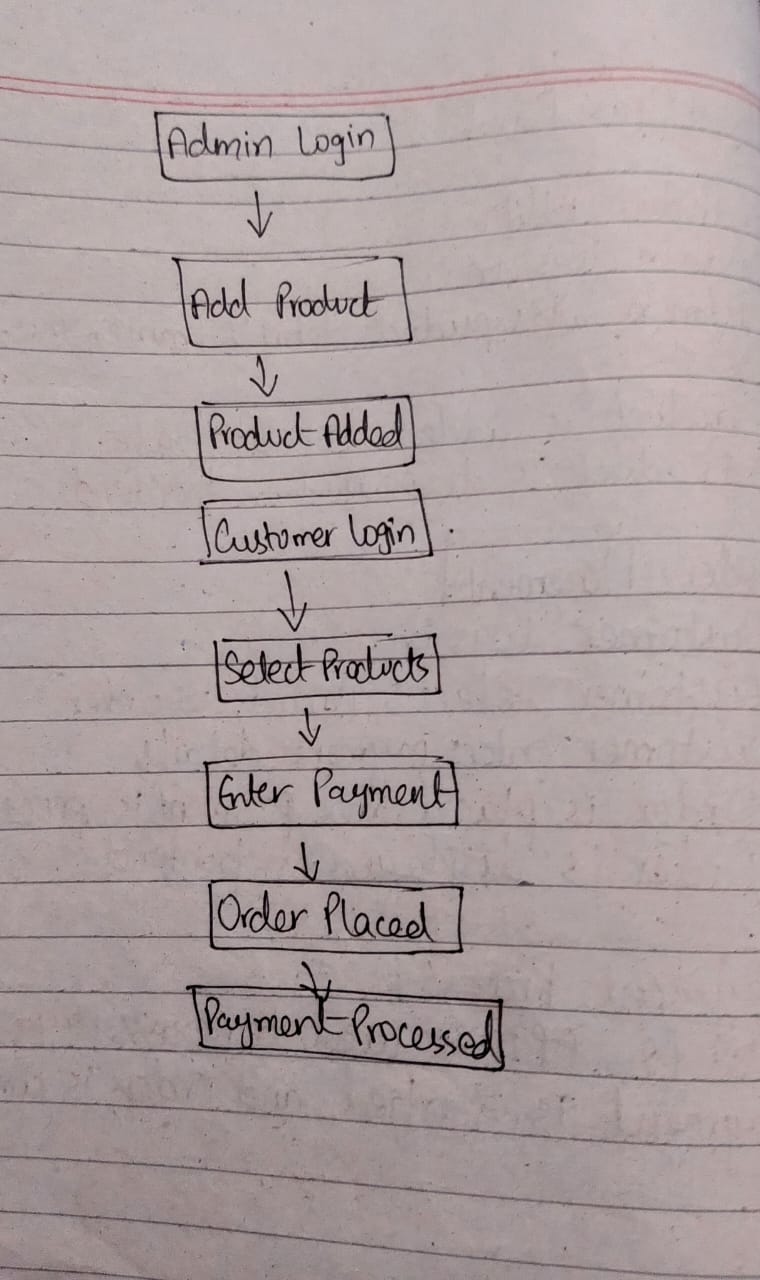 Admin Login
Add Product
Product Added
Customer Login
Select Products
Enter Payment
Order Placed
Payment Processed